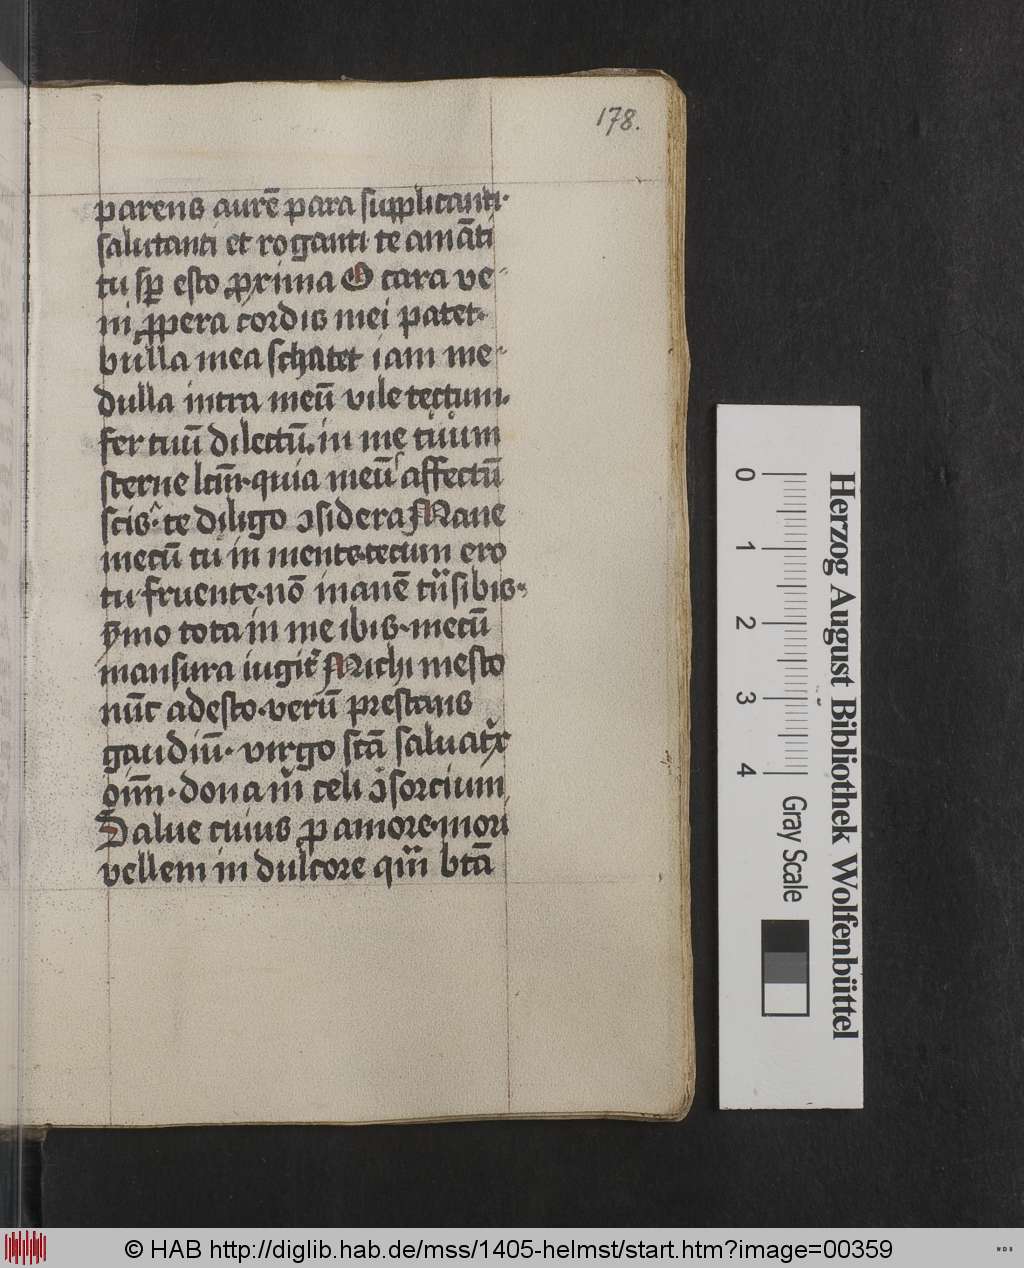 178.
parens aurē para supplicanti·
salutanti et roganti te amāti
tu sꝑ esto ꝓxima O cara ve-
ni ꝓpera cordis mei patet·
bulla mea schatet iam me-
dulla intra meū vile tectum·
fer tuū dilectū. in me tuum
sterne lctm̄·quia meū affectū
scis· te diligo ↄsidera Mane
mecū tu in mente·tecum ero
tu fruente·nō manē
ymo tota in me ibis·mecū
mansura iugit᷑ Michi mesto
nūc adesto·verū prestans
gaudiū· virgo sctā saluatͥx
oīm̄·dona m̄ celi ↄsorcium
Salue cuius ꝓ amore·mori
vellem in dulcore qm̄ btā
Herzog August Bibliothek Wolfenbüttel
0 1 2 3 4
Gray Scale
© HAB http://diglib.hab.de/mss/1405-helmst/start.htm?image=00359